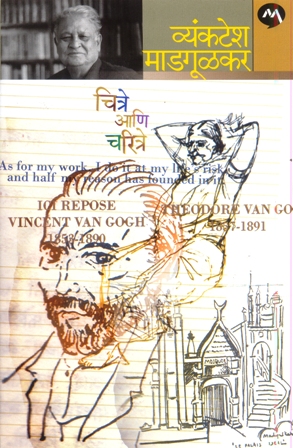 व्यंकटेश
माडगूळकर
चित्रे
आणि
चरित्रे
As for my work, I do it at my life's risk,
and half my reason has founded in it
ICI REPOSE
VINCENT VAN GOGH
1853-1890
THEODORE VAN GO
1857-1891
MOSQUEE
"LE PALAIS